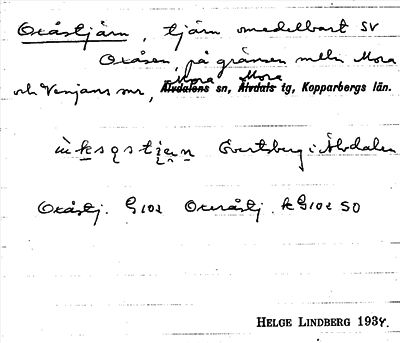 Oxåstjärn, tjärn omedelbart SV
Oxåsen, på gränsen mellan Mora
och Venjans snr, Mora Älvdalens sn, Mora Älvdals tg, Kopparbergs län.
Evertsberg i Älvdalen
Oxåstj. G102 Oxeråstj. k G102 SO
HELGE LINDBERG 1934.